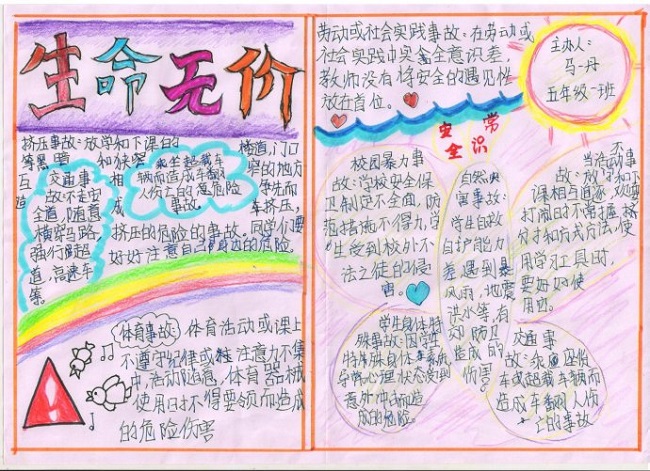 生命无价
挤压事故：放学和下课时
楼道，门口
等黑暗
窄的地方
互
相
车挤，
挤压的危险的事故。同学们要
好好注意自己身边的危险
交通事
故：不走安
全道，随意
横穿马路，
强行超
道，高速车
等。
车辆而造成车翻
人伤亡的危险
事故。
体育事故：体育活动或课上
不遵守纪律或 注意力不集
中，活动随意，体育器械
使用时不得要领而造成
的危险伤害
劳动或社会实践事故：在劳动或
社会实践中安全意识差，
教师没有将安全的遇见性
放在首位。
主办人：
马一丹
五年级一班
安全常识
校园暴力事
故：学校安全保
卫制定不全面，防
范措施不得力，学
生受到校外不
法之徒的侵
害。
自然灾
害事故：
学生自救
自护能力
差遇到暴
风雨，地震
洪水等，有
造成的
伤害。
不当活动事
故：放学和下
课相互追逐，欢耍
打闹时不掌握
分寸和方式方法，使
用学习工具时，
要好好使
用它。
学生身体特
殊事故：因学生
特殊身体
导师心理状态没到
意外冲动而造
成的危险。
交通事
故：乘
车或超载车辆而
造成车翻人伤
亡的事故